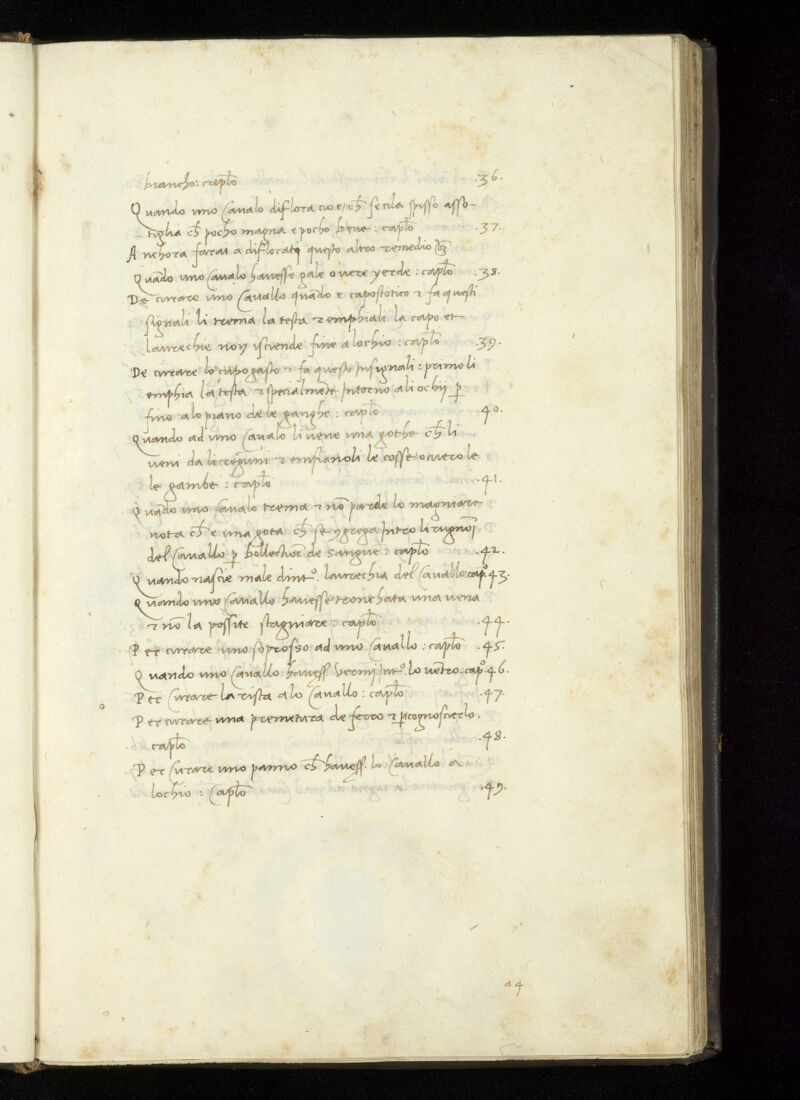 biancho: caplo .36.
Quando uno Cavalo diflora cioe, ch se cila spisso asso-
tiglia ch pocho magna e pocho beve : caplo .37.
Anchora farai a diflorati questo altro remedio
Quado uno Cavalo havesse gale overe yerde : caplo .38.
De curare uno Cavallo quado e capostotico & fa questi
signali li trema la testa & emphiali la capo et
laurechie non isciende fine alochio : caplo .39.
De curare lo capogasto & fa questo Insignali : primo li
emphia la testa & specialmete Intorno ali ochii p
fino alo piano dele ganghe : caplo .40.
Quando ad uno Cavalo li vene una gothe ch li
veni da li regnuni & emfianoli le cosse overo le
le gambe : caplo .41.
Quado uno Cavalo trema & no parde lo magniare
nota ch e una gota ch se ygrega Intro li rugnoi
del Cavallo p bollectioe de sangue : caplo .42.
Quando nascie male dintro laurechia del Cavallo capo 43.
Quando uno Cavallo havesse tronchata una vena
& no la possite stagniare : caplo .44.
Per curare uno soprosso ad uno Cavallo : caplo .45.
Quando uno Cavallo havess. vermi Int.o lo ventro. capo 46.
Per Curare la rista alo Cavallo : caplo .47.
Per curare una premetura de ferro & pcognoscierlo.
caplo .48.
Per Curare uno panno ch havess. lo Cavallo a
lochio : Caplo .49.
a4